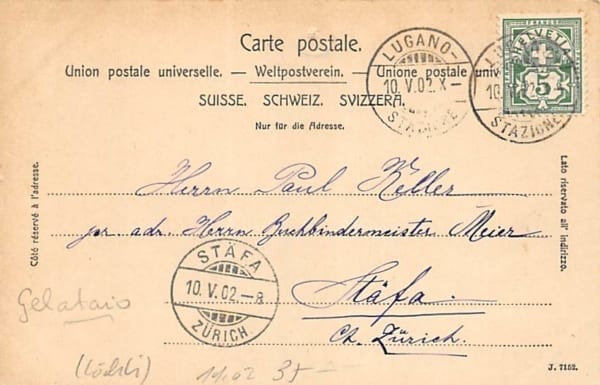 Carte postale.
Union postale universelle. — Weltpostverein. — Unione postale universale
SUISSE. SCHWEIZ. SVIZZERA.
Nur für die Adresse.
LUGANO-
10.V.02.X-
STAZIONE
LUGANO-
10.V.02.X-
STAZIONE
HELVETIA
FRANCO
5
Côté réservé à l'adresse.
Lato riservato all' indirizzo.
Herrn Paul Keller
pr. adr. Herrn Buchbindermeister Meier
Stäfa.
Ct. Zürich.
STÄFA
10.V.02.-8
ZÜRICH.
Gelataio
11.02
J. 7152.